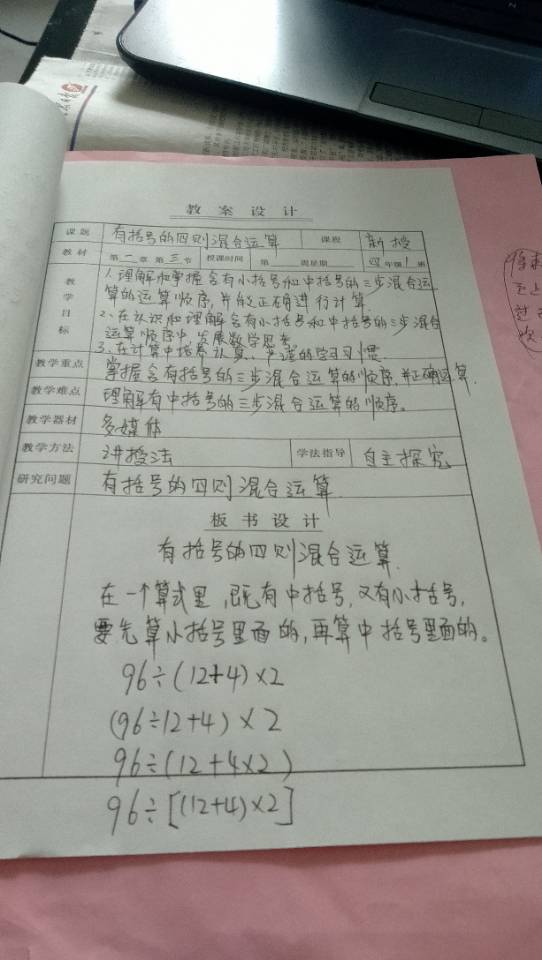 教案设计
课题 有括号的四则混合运算 课程 新授
教材 第二章第三节 授课时间 第 周星期 四年级1班
教学目标
1、理解和掌握含有小括号和中括号的三步混合运
算的运算顺序,并能正确进行计算.
2、在认识和理解含有小括号和中括号的三步混合
运算顺序中,发展数学思考.
3、在计算中培养认真、严谨的学习习惯.
教学重点 掌握含有括号的三步混合运算的顺序,并正确运算.
教学难点 理解有中括号的三步混合运算的顺序。
教学器材 多媒体
教学方法 讲授法 学法指导 自主探究
研究问题 有括号的四则混合运算.
板书设计
有括号的四则混合运算.
在一个算式里,既有中括号,又有小括号,
要先算小括号里面的,再算中括号里面的。
96÷(12+4)×2
(96÷12+4)×2
96÷(12+4×2)
96÷[(12+4)×2]